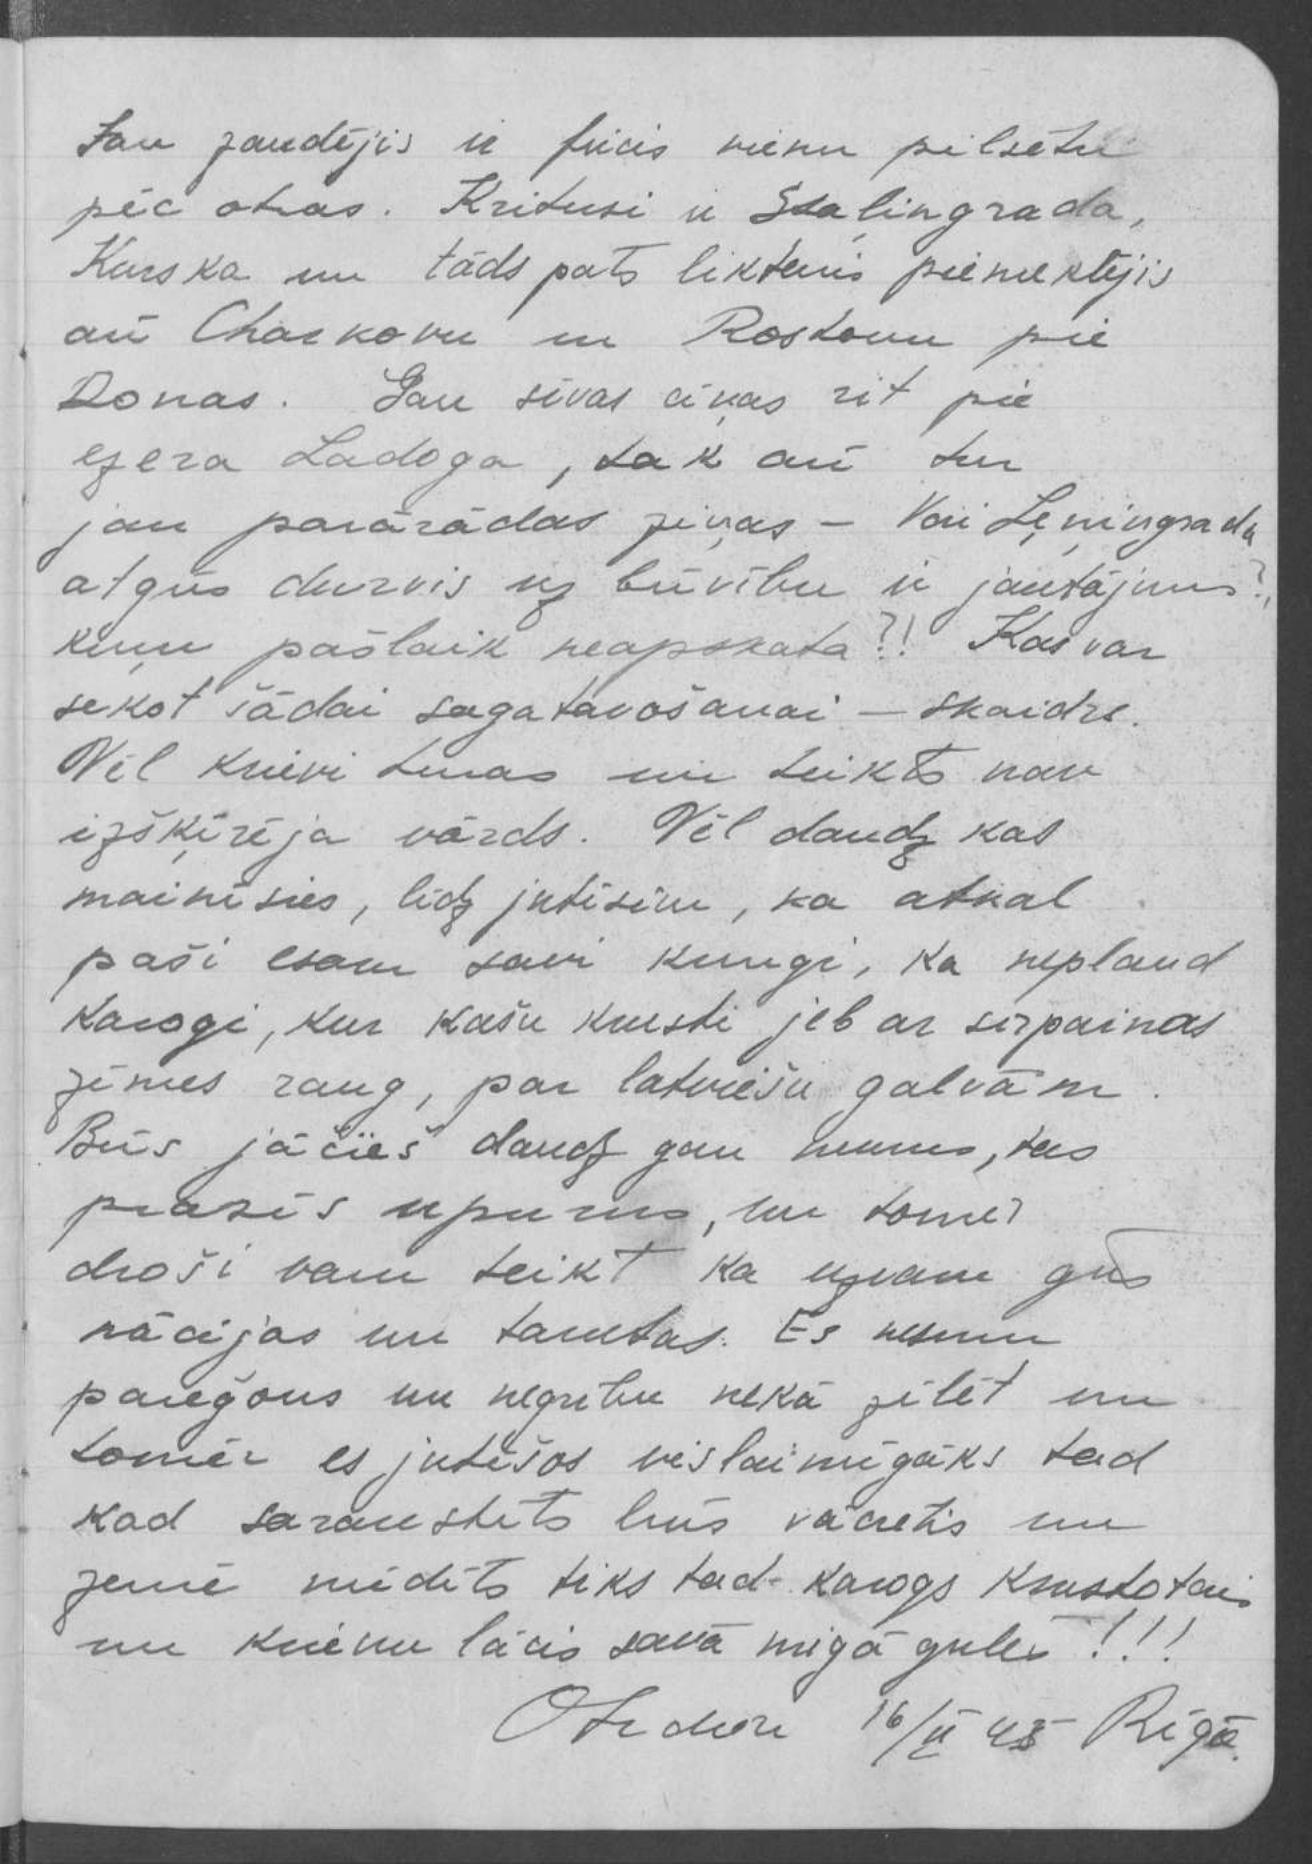 Jau zaudējis ir fricis vienu pilsētu
pēc otras. Kritusi ir Staļingrada,
Kurska un tāds pats liktenis piemeklējis
arī Charkovu un Rostovu pie
Donas. Gan sīvas cīņas rit pie
ezera Ladoga, tak arī tur
jau parārādas ziņas – Vai Ļeņingrada
atgūs durvis uz būvību ir jautājums?,
kuŗu pašlaik neapskata?! Kas var
sekot šādai sagatavošanai – skaidrs.
Vēl krievi tuvas un teikts nav
izšķirēja vārds. Vēl daudz kas
mainīsies, līdz jutīsim, ka atkal
paši esam savi kungi, ka neplaud
karogi, kur kašu krusti jeb ar sirpainas
zīmes raug, par latviešu galvām.
Būs jācieš daudz gan mums, tas
prasīs upurus, un tomēr
droši varu teikt ka uzvaru gūs
nācijas un tautas. Es nesmu
pareģons un negribu nekā zīlēt un
tomēr es jutīšos vislaimīgāks tad
kad saraustīts būs vācietis un
zemē mīdīts tiks tad karogs krustotais
un krievu lācis savā migā gulēs!!!
Otrdien 16/II 43 Rīgā.